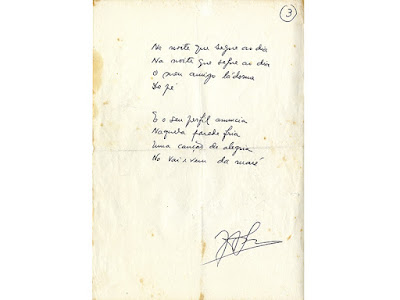 3
Na noite que segue ao dia
Na noite que ao dia
O meu amigo lá dorme
De pé
E o seu perfil anuncia
Naquela parede fria
Uma canção de alegria
No vai e vem da maré